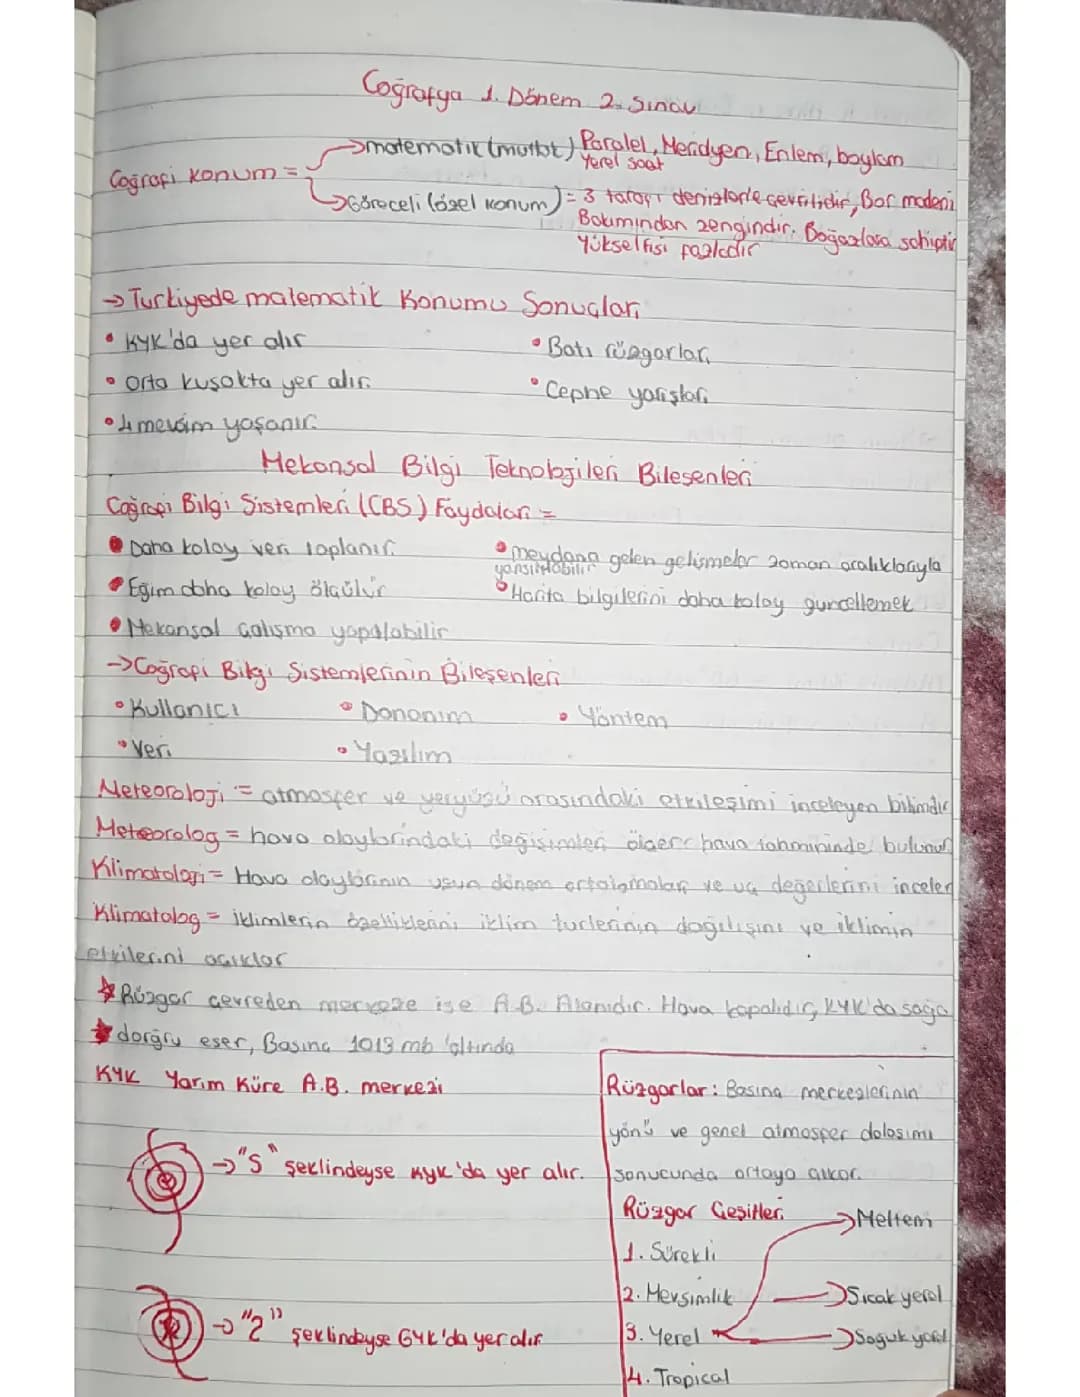 Coğrafya 1. Dönem 2. Sınav
→matematik (mutlat) Paralel, Meridyen, Enlem, boylam
Yerel saat
Coğrafi konum =
→Göreceli (özel konum) = 3 tarafı denizlerle çevrilidir, Bor madeni
Bakımından zengindir. Boğazlara sahiptir
Yükseltisi fazladır
→ Turkiyede matematik Konumu Sonuçları
• KYK'da yer alır
• Batı rüzgarları
• Orta kuşakta yer alır.
• Cephe yağışları
• 4 mevsim yaşanır.
Mekansal Bilgi Teknolojileri Bileşenleri
Coğrafi Bilgi Sistemleri (CBS) Faydaları =
• Daha kolay veri toplanır.
• meydana gelen gelişmeler zaman aralıklarıyla
yansıtılabilir
• Eğim daha kolay ölçülür
• Harita bilgilerini daha kolay güncellemek
• Mekansal çalışma yapılabilir
→Coğrafi Bilgi Sistemlerinin Bileşenleri
• Kullanıcı
• Donanım
• Yöntem
• Veri
• Yazılım
Meteoroloji = atmosfer ve yeryüzü arasındaki etkileşimi inceleyen bilimdir
Meteorolog = hava olaylarındaki değişimleri ölçer hava tahmininde bulunur
Klimatoloji = Hava olaylarının uzun dönem ortalamaları ve uç değerlerini inceler
Klimatolog = iklimlerin özelliklerini iklim türlerinin dağılışını ve iklimin
etkilerini açıklar
★ Rüzgar çevreden merkeze ise A.B. Alanıdır. Hava kapalıdır, KYK'da sağa
★ dorğru eser, Basınç 1013 mb 'altında
KYK Yarım Küre A.B. merkezi
→"S" şeklindeyse KYK'da yer alır.
→"2" şeklindeyse GYK'da yer alır
Rüzgarlar: Basınç merkezlerinin
yönü ve genel atmosfer dolaşımı
sonucunda ortaya çıkar.
Rüzgar Çeşitleri
→Meltem
1. Sürekli
2. Mevsimlik
→Sıcak yerel
3. Yerel
→Soğuk yerel
4. Tropical